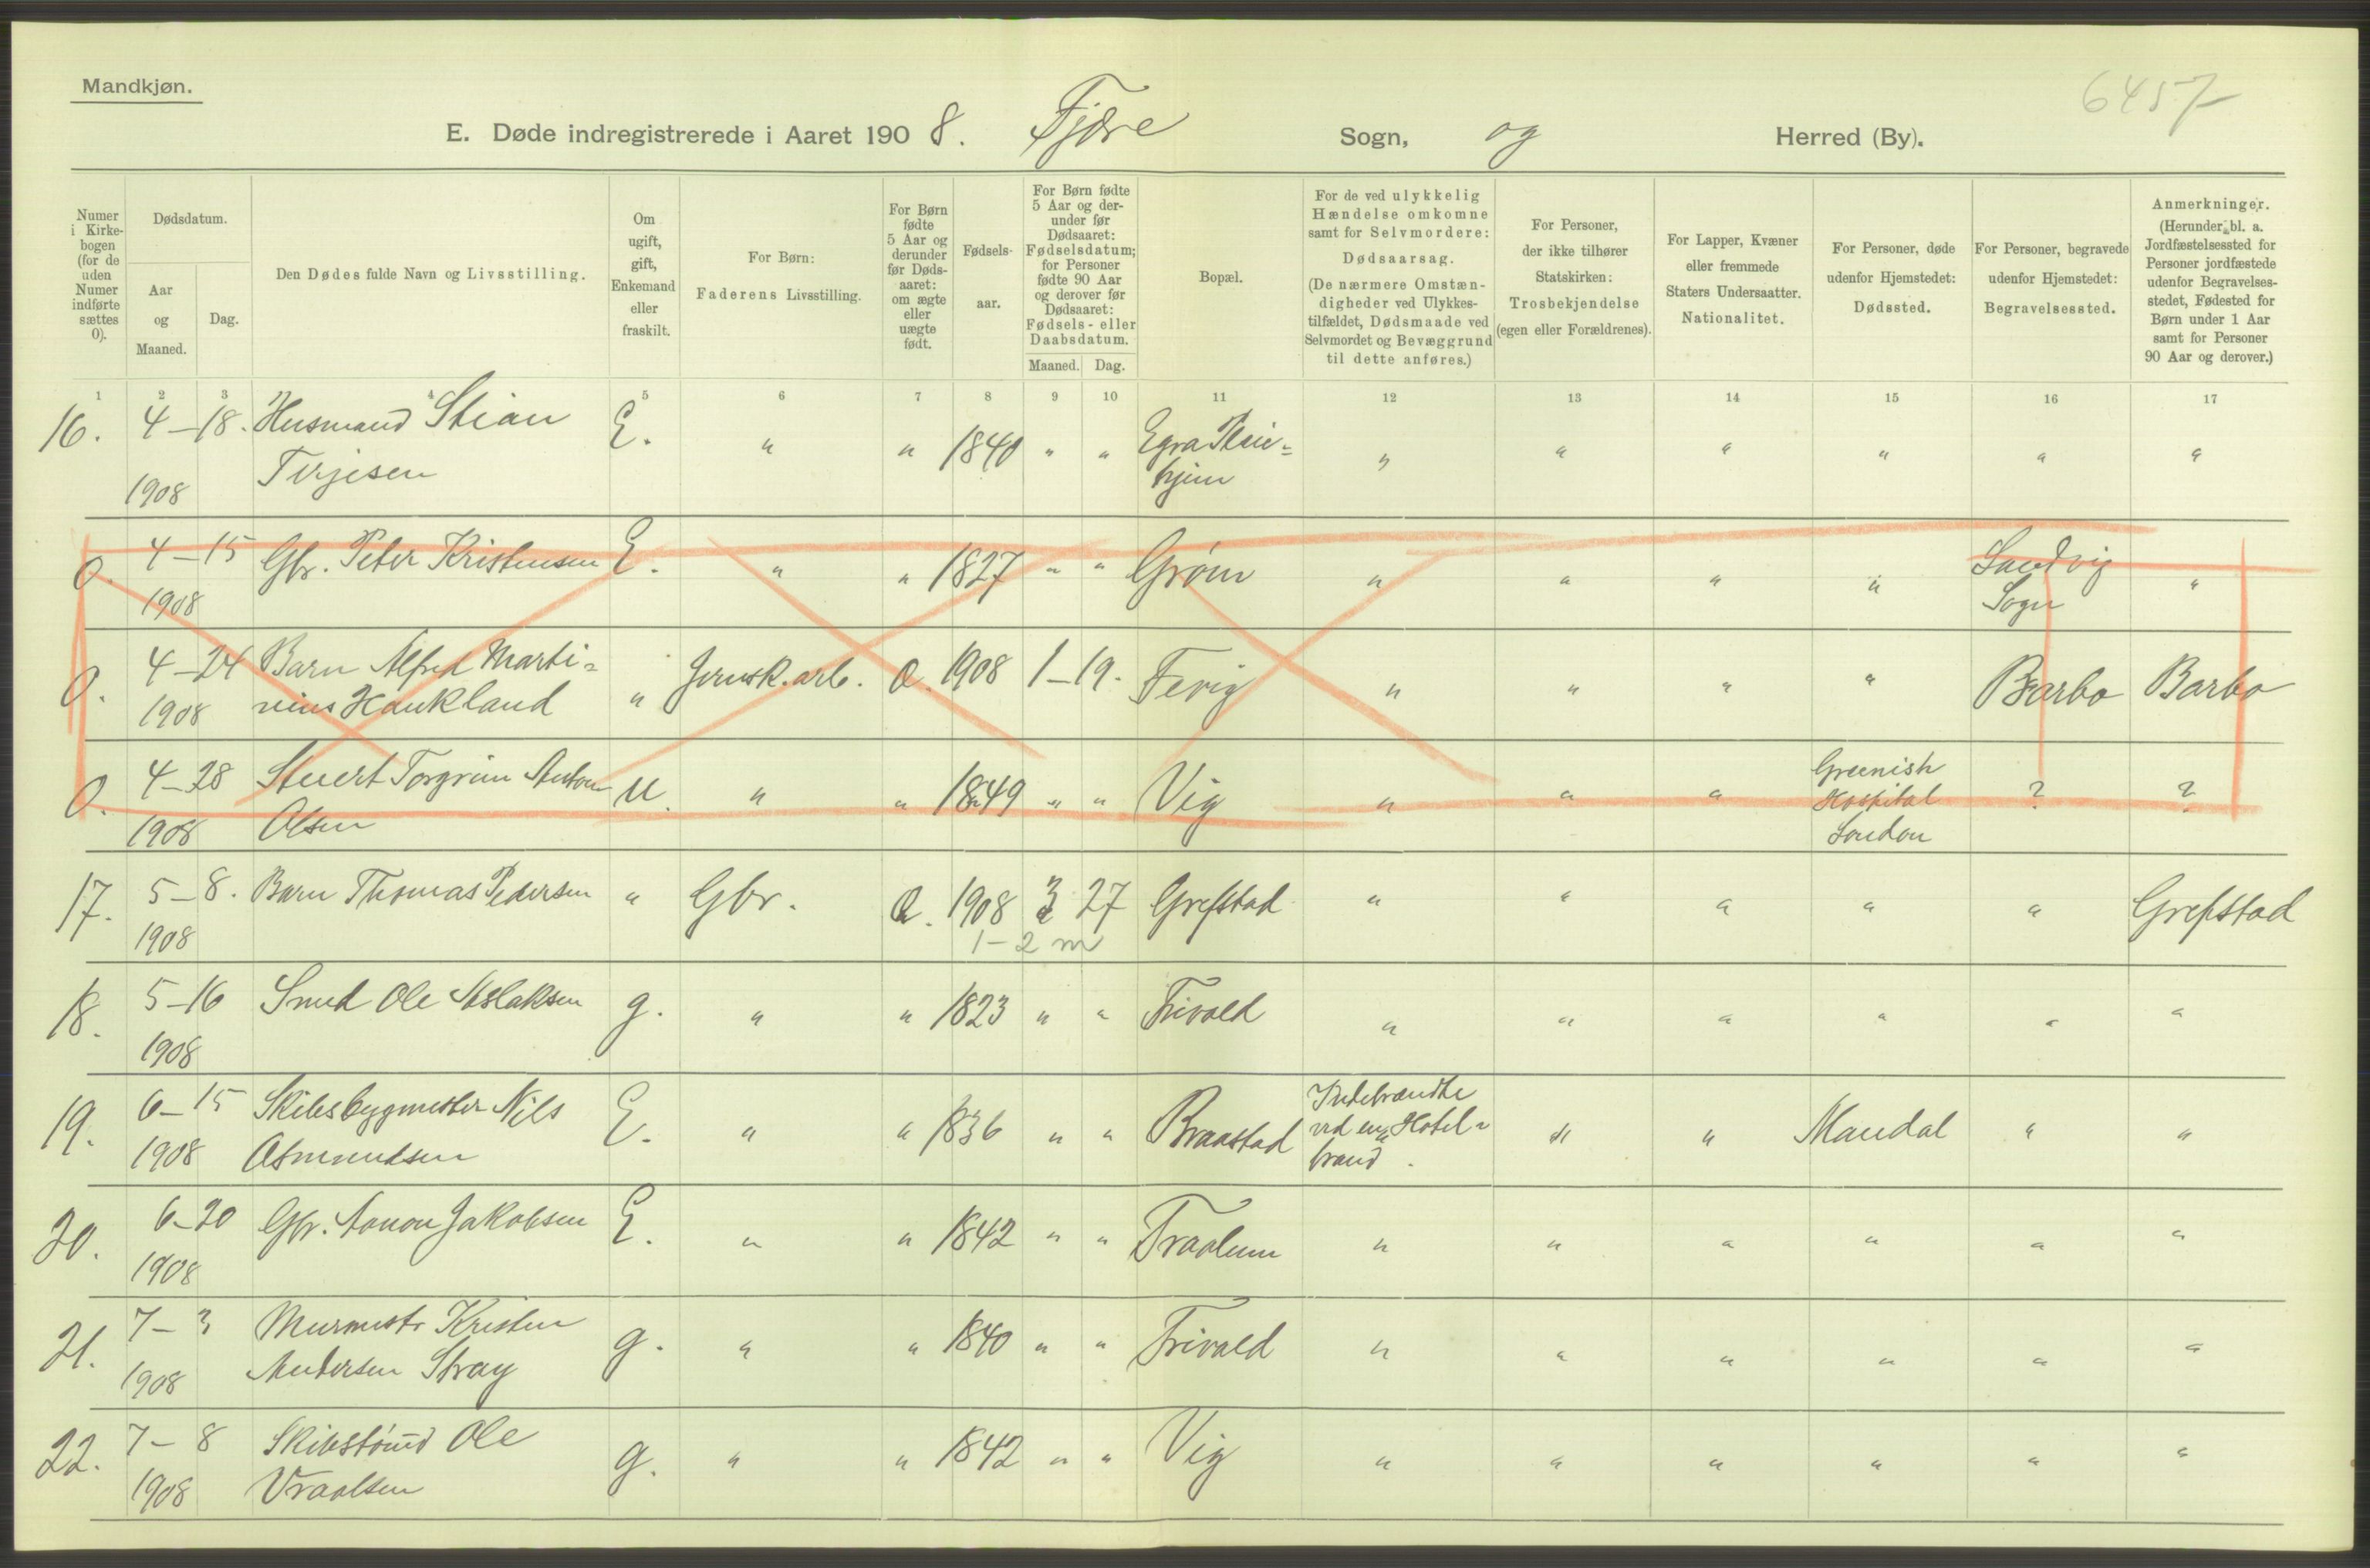 Mandkjøn.
6457
E. Døde indregistrerede i Aaret 1908. Fjære Sogn, og Herred (By).
Numer i Kirkebogen (for de uden Numer indførte sættes 0).
Dødsdatum.
Aar og Maaned.
Dag.
Den Dødes fulde Navn og Livsstilling.
Om ugift, gift, Enkemand eller fraskilt.
For Børn: Faderens Livsstilling.
For Børn fødte 5 Aar og derunder før Dødsaaret: om ægte eller uægte født.
Fødselsaar.
For Børn fødte 5 Aar og derunder før Dødsaaret: Fødselsdatum; for Personer fødte 90 Aar og derover før Dødsaaret: Fødsels- eller Daabsdatum.
Maaned. Dag.
Bopæl.
For de ved ulykkelig Hændelse omkomne samt for Selvmordere: Dødsaarsag. (De nærmere Omstændigheder ved Ulykkestilfældet, Dødsmaade ved Selvmordet og Bevæggrund til dette anføres.)
For Personer, der ikke tilhører Statskirken: Trosbekjendelse (egen eller Forældrenes).
For Lapper, Kvæner eller fremmede Staters Undersaatter. Nationalitet.
For Personer, døde udenfor Hjemstedet: Dødssted.
For Personer, begravede udenfor Hjemstedet: Begravelsessted.
Anmerkninger. (Herunder bl. a. Jordfæstelsessted for Personer jordfæstede udenfor Begravelsesstedet, Fødested for Børn under 1 Aar samt for Personer 90 Aar og derover.)
1 2 3 4 5 6 7 8 9 10 11 12 13 14 15 16 17
16. 4-18. Husmand Stian E. " " 1840 " " Egra " " " " " "
1908 Terjesen
0. 4-15 Gbr. Peter Kristensen E. " " 1827 " " Grøm " " " " Landvig "
1908 Sogn
0. 4-24 Barn Alfred Marti= " Jernsk.arb. Æ. 1908 1-19. Fevig " " " " Barbo Barbo
1908 nius Haukland
0. 4-28 Stuert Torgrim Anton U. " " 1849 " " Vig " " " Greenish Hospital London ? ?
1908 Olsen
17. 5-8. Barn Thomas Pedersen " Gbr. Æ. 1908 3 27 Grefstad " " " " " Grefstad
1908 1-2 m
18. 5-16 Smed Ole Aslaksen g. " " 1823 " " Frivold " " " " " "
1908
19. 6-15 Skibsbygmester Nils E. " " 1836 " " Braastad Indebrændte ved en Hotel= brand. " " Mandal " "
1908 Asmundsen
20. 6-20 Gbr. Aanon Jakobsen E. " " 1842 " " Traalum " " " " " "
1908
21. 7-3 Murmestr Kristen g. " " 1840 " " Frivold " " " " " "
1908 Andersen Stray
22. 7-8 Skibstømd Ole g. " " 1842 " " Vig " " " " " "
1908 Vraalsen